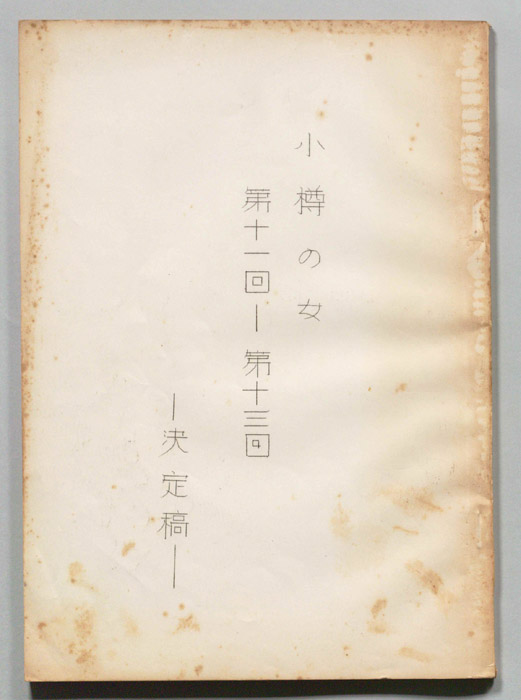 小樽の女
第十一回ー第十三回
ー決定稿ー